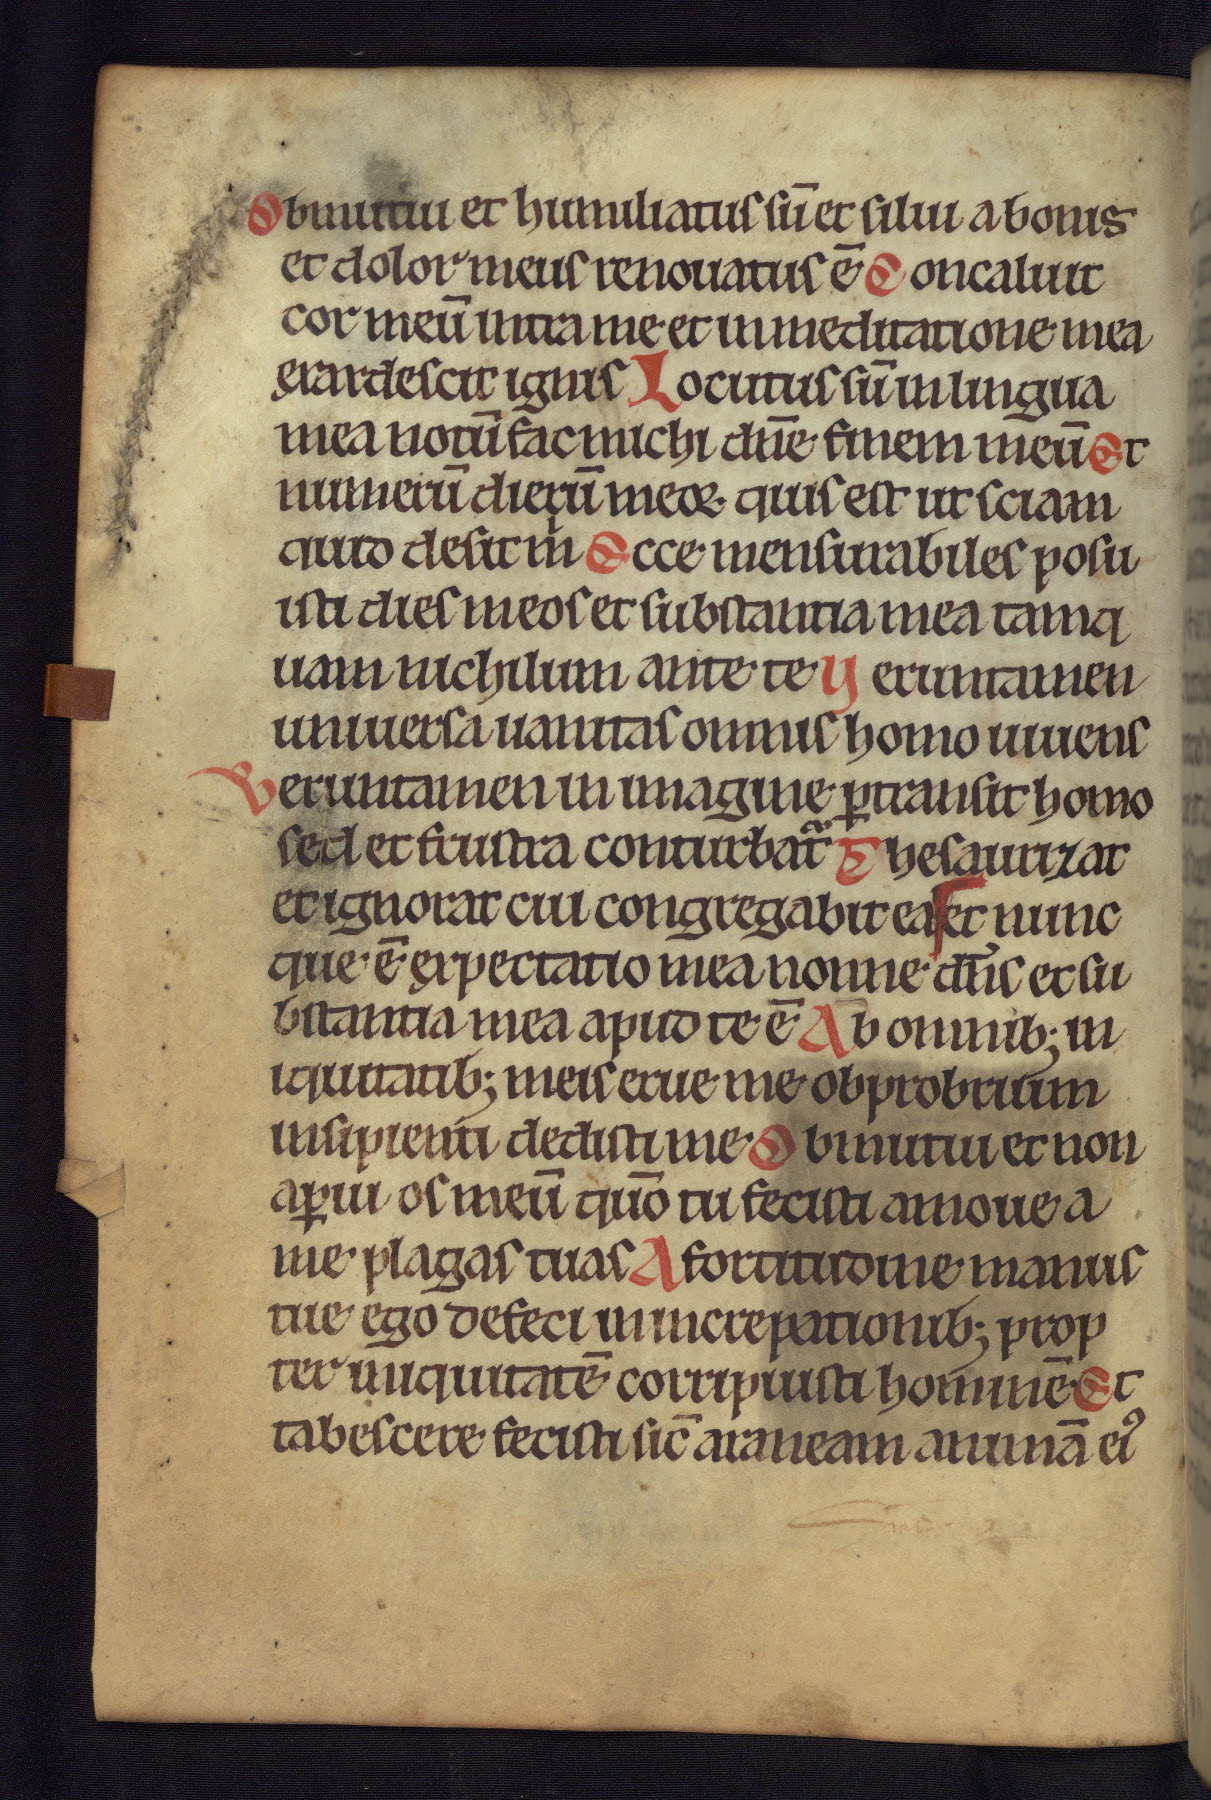 Obmutui et humiliatus sū et silui a bonis
et dolor meus renouatus ē Concaluit
cor meū intra me et in meditatione mea
exardescit ignis Locutus sū in lingua
mea notū fac michi dn̄e finem meū Et
numerū dierū meoꝝ quis est ut sciam
quid desit m̄ Ecce mensurabiles posu
isti dies meos et substantia mea tamq
uam nichilum ante te Ueruntamen
uniuersa uanitas omnis homo uiuens
Veruntamen in imagine ꝑtransit homo
sed et frustra conturbat᷑ Thesaurizat
et ignorat cui congregabit ea et nunc
que ē expectatio mea nonne dn̄s et su
bstantia mea apud te ē Ab omnib; in
iquitatib; meis erue me obprobrium
insipienti dedisti me Obmutui et non
aꝑui os meū quō tu fecisti amoue a
me plagas tuas A fortitudine manus
tue ego defeci in increpationib; prop
ter iniquitatē corripuisti hominē Et
tabescere fecisti sic̄ araneam animā eiꝰ